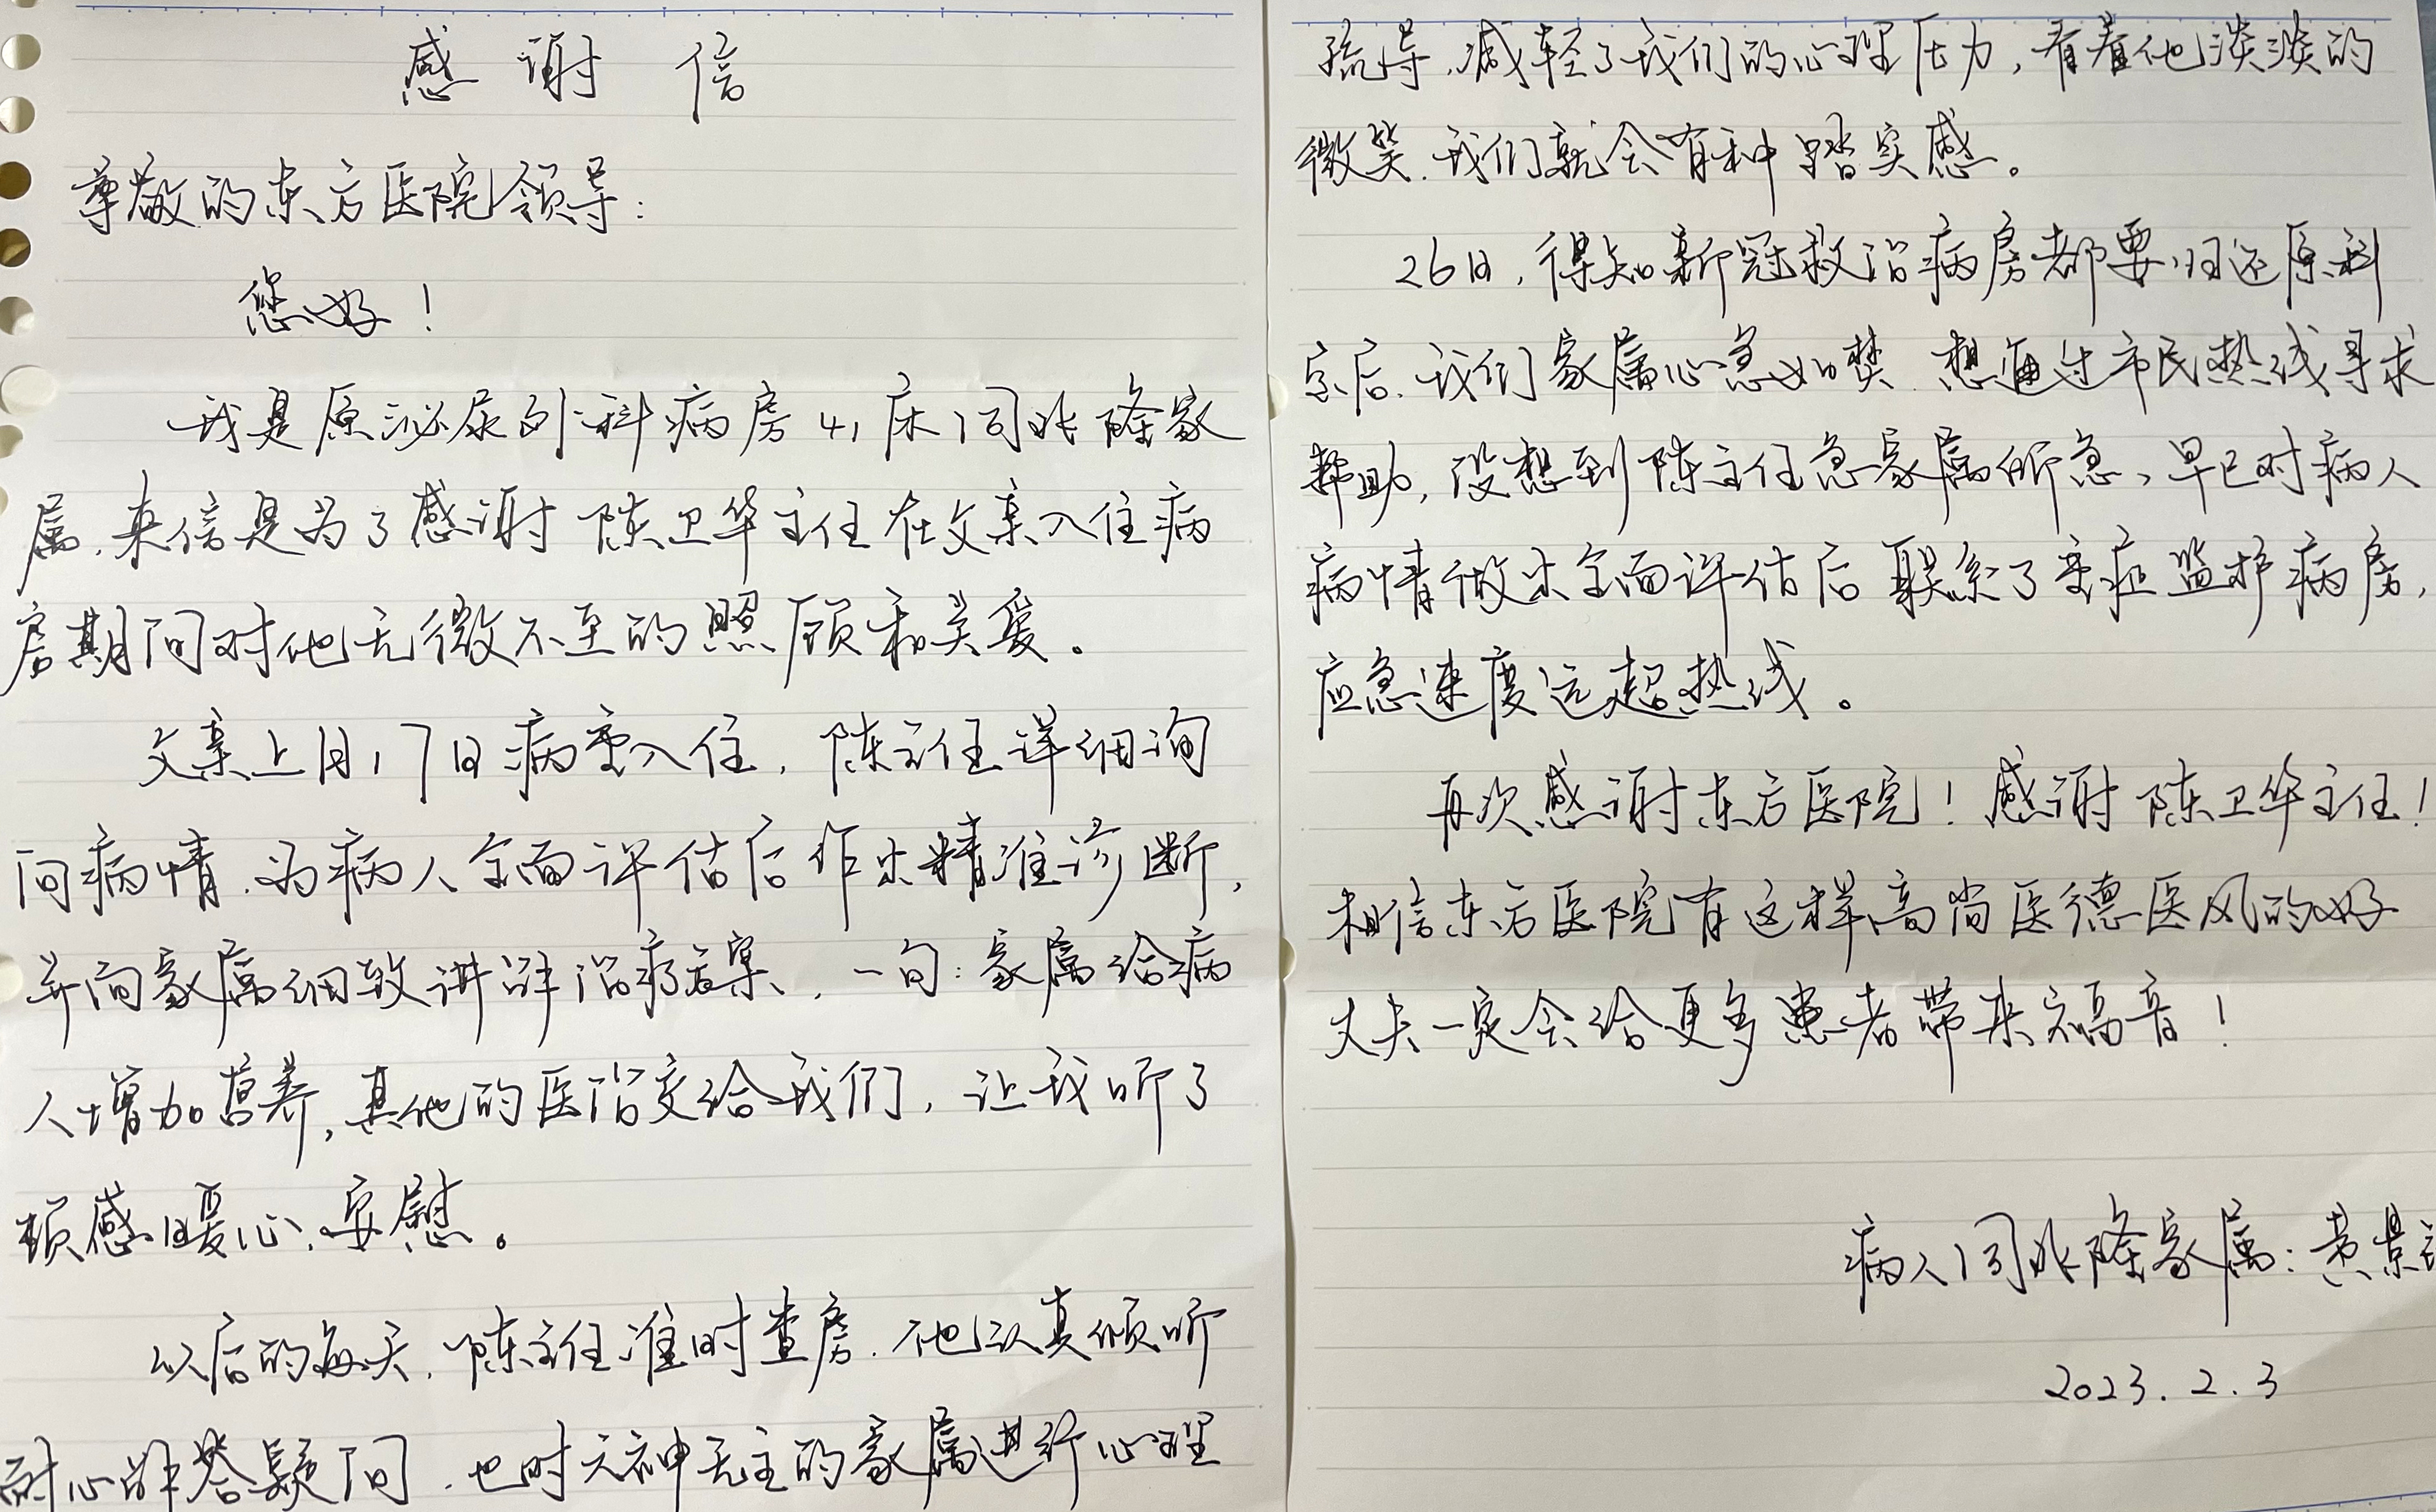 感谢信
尊敬的东方医院领导：
您好！
我是原泌尿外科病房41床闫兆隆家
属，来信是为了感谢陈卫华主任在父亲入住病
房期间对他无微不至的照顾和关爱。
父亲上月17日病重入住，陈主任详细询
问病情，为病人全面评估后作出精准诊断，
并向家属细致讲解治疗方案，一句：家属给病
人增加营养，其他的医治交给我们，让我听了
顿感暖心、安慰。
以后的每天，陈主任准时查房，他认真倾听
耐心解答疑问，也对六神无主的家属进行心理
疏导，减轻了我们的心理压力，看着他淡淡的
微笑，我们就会有种踏实感。
26日，得知新冠救治病房都要归还原科
室后，我们家属心急如焚，想通过市民热线寻求
帮助，没想到陈主任急家属所急，早已对病人
病情做出全面评估后联系了重症监护病房，
应急速度远超热线。
再次感谢东方医院！感谢陈卫华主任！
相信东方医院有这样高尚医德医风的好
丈夫一定会给更多患者带来福音！
病人闫兆隆家属：黄景
2023.2.3